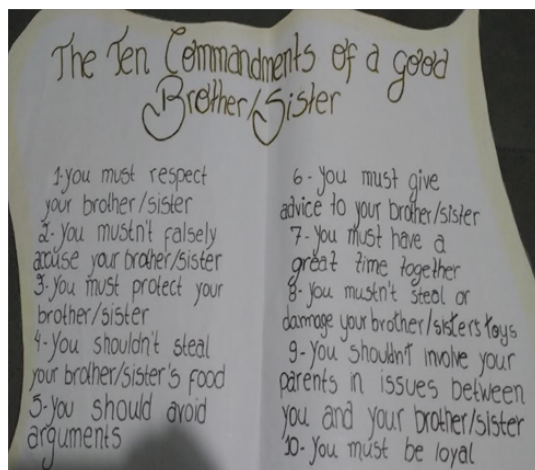 The Ten Commandments of a good
Brother/Sister
1-you must respect
your brother/sister
2-you mustn't falsely
accuse your brother/sister
3-you must protect your
brother/sister
4-you shouldn't steal
your brother/sister's food
5-you should avoid
arguments
6-you must give
advice to your brother/sister
7-you must have a
great time together
8-you mustn't steal or
damage your brother/sisters toys
9-you shouldn't involve your
parents in issues between
you and your brother/sister
10-you must be loyal